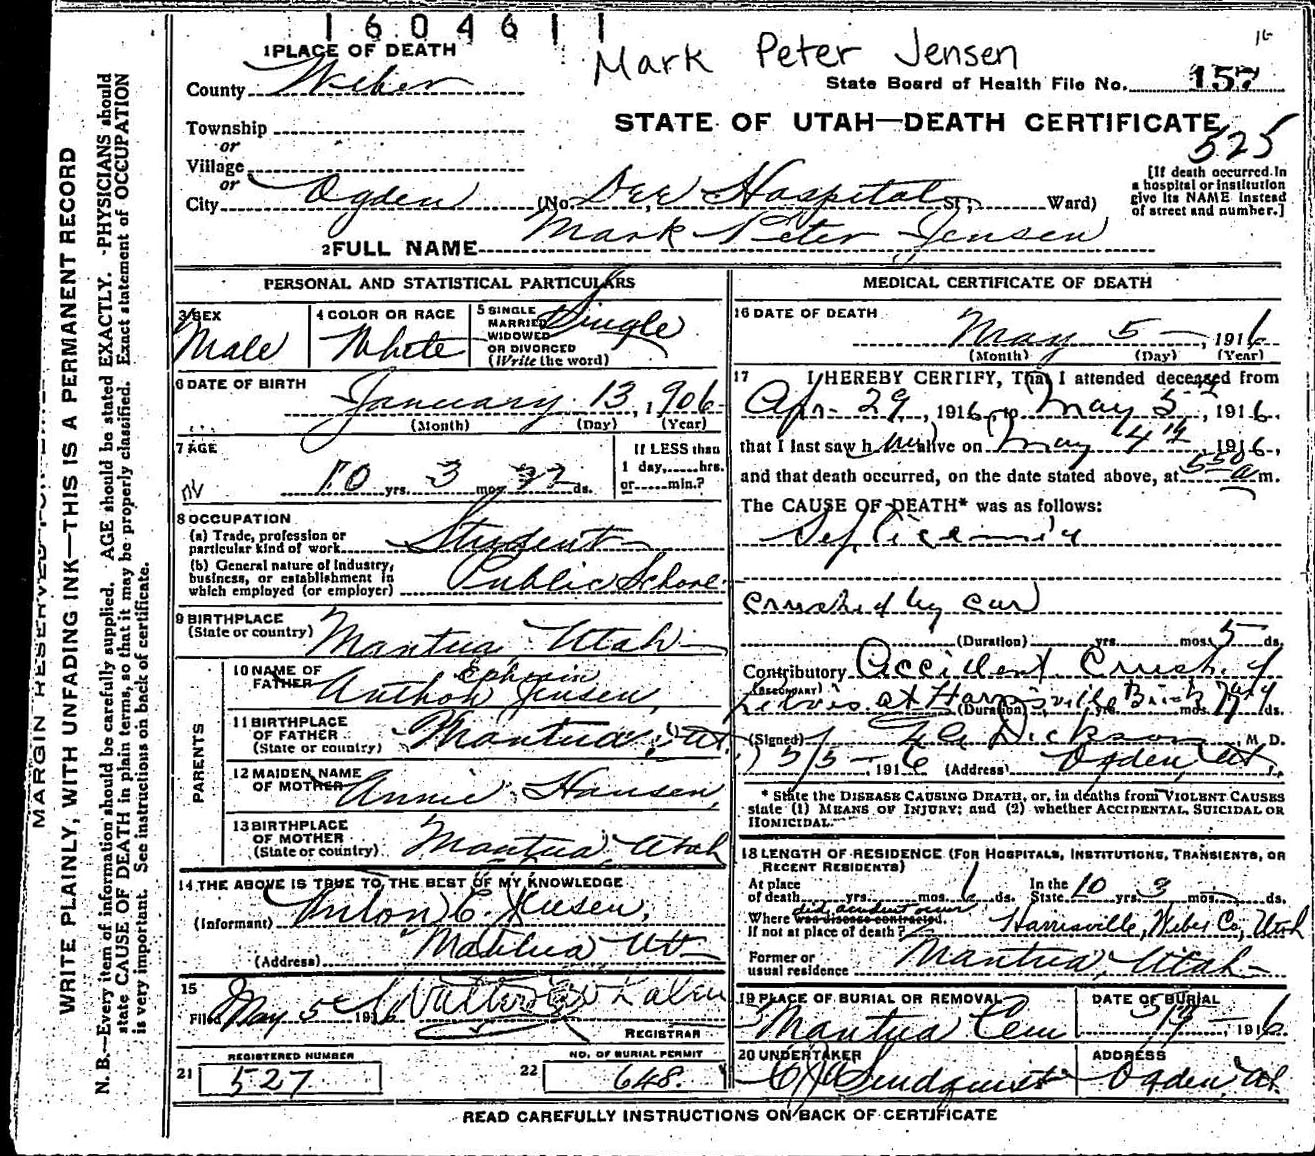 1604611
Mark Peter Jensen
16
1 PLACE OF DEATH
County Weber
State Board of Health File No. 157
Township
or
STATE OF UTAH—DEATH CERTIFICATE
525
Village
or
City Ogden (No. Dee Hospital St.; Ward)
[If death occurred in
a hospital or institution
give its NAME instead
of street and number.]
2 FULL NAME Mark Peter Jensen
PERSONAL AND STATISTICAL PARTICULARS
3 SEX
Male
4 COLOR OR RACE
White
5 SINGLE
MARRIED
WIDOWED
OR DIVORCED
(Write the word)
Single
6 DATE OF BIRTH
January 13, 1906
(Month) (Day) (Year)
7 AGE
10 yrs. 3 mos. 22 ds.
If LESS than
1 day,......hrs.
or......min.?
8 OCCUPATION
(a) Trade, profession or
particular kind of work Student
(b) General nature of Industry,
business, or establishment in
which employed (or employer) Public School
9 BIRTHPLACE
(State or country) Mantua, Utah
PARENTS
10 NAME OF
FATHER Anthon Ephraim Jensen,
11 BIRTHPLACE
OF FATHER
(State or country) Mantua, Ut.
12 MAIDEN NAME
OF MOTHER Annie Hansen,
13 BIRTHPLACE
OF MOTHER
(State or country) Mantua, Utah
14 THE ABOVE IS TRUE TO THE BEST OF MY KNOWLEDGE
(Informant) Anton E. Jensen,
(Address) Mantua, Ut
15
Filed May 5 1916
REGISTRAR
REGISTERED NUMBER
21 527
NO. OF BURIAL PERMIT
22 648.
MEDICAL CERTIFICATE OF DEATH
16 DATE OF DEATH
May 5, 1916
(Month) (Day) (Year)
17 I HEREBY CERTIFY, That I attended deceased from
Apr. 29, 1916, to May 5, 1916,
that I last saw h im alive on May 4th 1916,
and that death occurred, on the date stated above, at 5 50 a m.
The CAUSE OF DEATH* was as follows:
Septicemia
crushed by car
(Duration) yrs. mos. 5 ds.
Contributory Accident Crush of
(SECONDARY) Pelvis at Harrisville Brick Yard
(Duration) yrs. mos. ds.
(Signed) Dickson, M. D.
5/5 - 1916 (Address) Ogden, Ut.
* State the DISEASE CAUSING DEATH, or, in deaths from VIOLENT CAUSES
state (1) MEANS OF INJURY; and (2) whether ACCIDENTAL, SUICIDAL OR
HOMICIDAL
18 LENGTH OF RESIDENCE (FOR HOSPITALS, INSTITUTIONS, TRANSIENTS, OR
RECENT RESIDENTS)
At place
of death yrs. mos. 6 ds. In the State 10 yrs. 3 mos. ds.
did accident occur
Where was disease contracted,
If not at place of death? Harrisville, Weber Co, Utah
Former or
usual residence Mantua, Utah
19 PLACE OF BURIAL OR REMOVAL
Mantua Cem
DATE OF BURIAL
5/7 - 1916
20 UNDERTAKER
Lindquist
ADDRESS
Ogden Ut.
READ CAREFULLY INSTRUCTIONS ON BACK OF CERTIFICATE
MARGIN RESERVED FOR
WRITE PLAINLY, WITH UNFADING INK—THIS IS A PERMANENT RECORD
N. B.—Every item of information should be carefully supplied. AGE should be stated EXACTLY. PHYSICIANS should
state CAUSE OF DEATH in plain terms, so that it may be properly classified. Exact statement of OCCUPATION
is very important. See instructions on back of certificate.